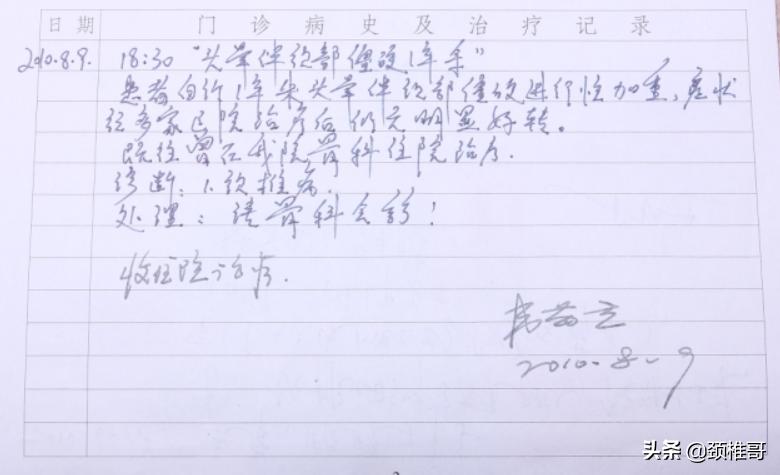 日期 门诊病史及治疗记录
2010.8.9. 18:30 "头晕伴颈部僵硬1年余"
患者自诉1年来头晕伴颈部僵硬进行性加重,症状
经多家医院治疗后仍无明显好转。
既往曾在我院骨科住院治疗.
诊断:1、颈椎病.
处理:请骨科会诊!
收住院治疗.
2010-8-9
头条 @颈椎哥